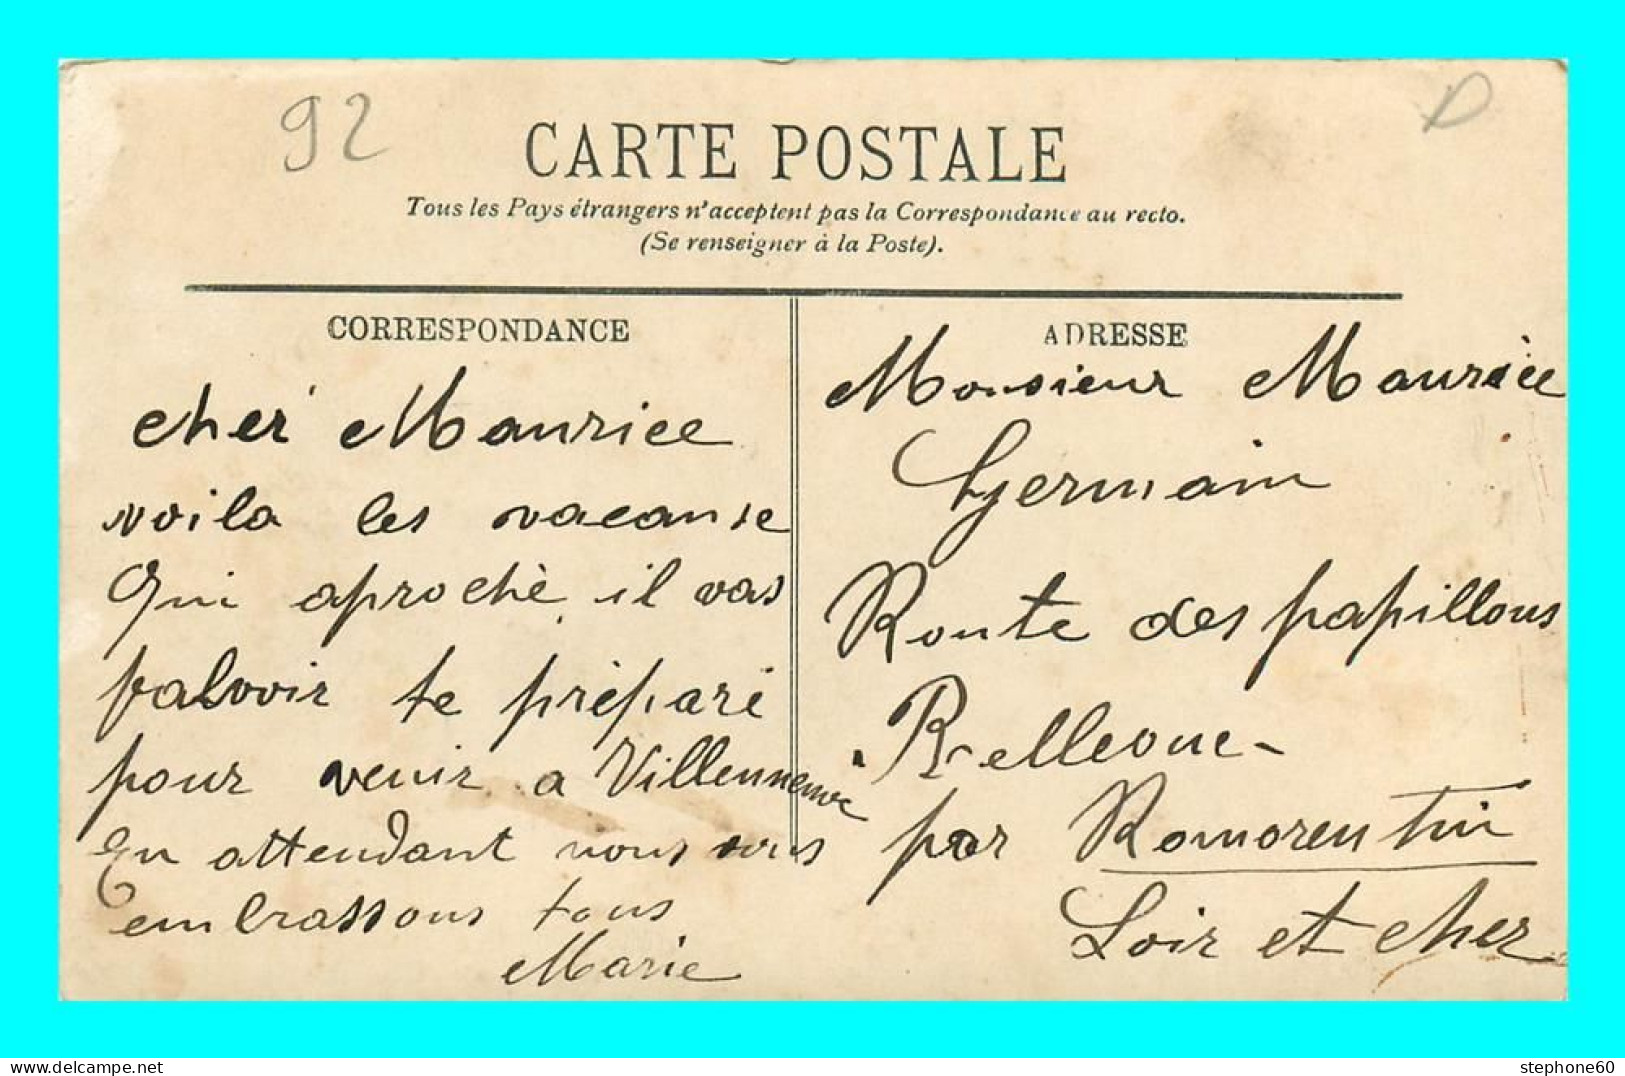 92
D
CARTE POSTALE
Tous les Pays étrangers n'acceptent pas la Correspondance au recto.
(Se renseigner à la Poste).
CORRESPONDANCE
cher Maurice
voila les vacanse
qui aprochè il vas
falovir te préparé
pour venir a Villenneuve
En attendant nous vous
embrassons tous
Marie
ADRESSE
Monsieur Maurice
Germain
Route des papillons
Bellevue -
par Romorentin
Loir et cher
www.delcampe.net
stephone60